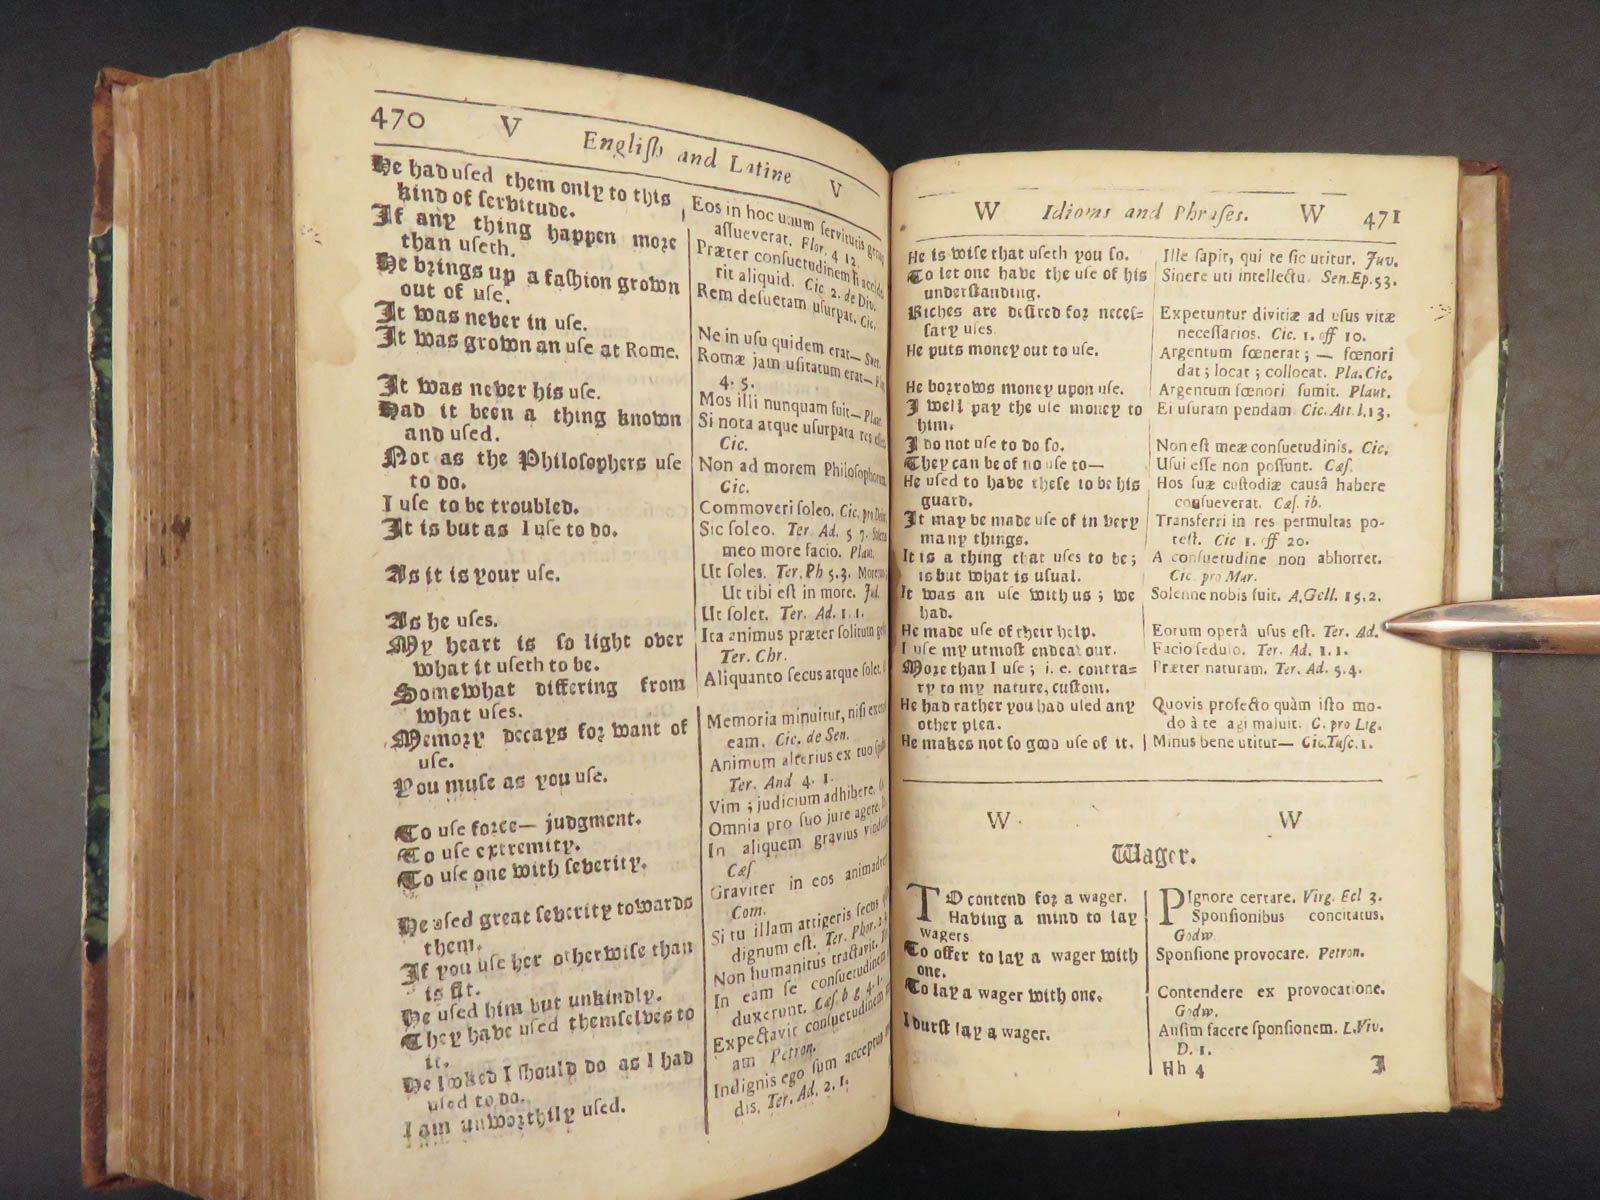 470 V English and Latine V
He had used them only to this
kind of servitude.
If any thing happen more
than useth.
He brings up a fashion grown
out of use.
It was never in use.
It was grown an use at Rome.
It was never his use.
Had it been a thing known
and used.
Not as the Philosophers use
to do.
I use to be troubled.
It is but as I use to do.
As it is your use.
As he uses.
My heart is so light over
what it useth to be.
Somewhat differing from
what uses.
Memory decays for want of
use.
You muse as you use.
To use force— judgment.
To use extremity.
To use one with severity.
He used great severity towards
them.
If you use her otherwise than
is fit.
He used him but unkindly.
They have used themselves to
it.
He looked I should do as I had
used to do.
I am unworthily used.
Eos in hoc unum servitutis
assueverat. Flor. 4 12.
Præter consuetudinem
rit aliquid. Cic 2. de Div.
Rem desuetam usurpat. Cic.
Ne in usu quidem erat— Suet.
Romæ jam usitatum erat—
4. 5.
Mos illi nunquam fuit— Plaut.
Si nota atque usurpata res
Cic.
Non ad morem Philosophorum
Cic.
Commoveri soleo. Cic. pro
Sic soleo. Ter. Ad. 5 7.
meo more facio. Plaut.
Ut soles. Ter. Ph 5.3.
Ut tibi est in more. Jud.
Ut solet. Ter. Ad. 1.1.
Ita animus præter solitum
Ter. Chr.
Aliquanto secus atque solet.
Memoria minuitur, nisi
eam. Cic. de Sen.
Animum alterius ex tuo
Ter. And 4. 1.
Vim ; judicium adhibere.
Omnia pro suo jure agere.
In aliquem gravius
Cæs
Graviter in eos
Com.
Si tu illam attigeris secus
dignum est. Ter. Phor. 2.
Non humanitus tractavit.
In eam se consuetudinem
duxerunt. Cæs. b g 4. 1.
Expectavit consuetudinem
am Petron.
Indignis ego sum acceptus
dis. Ter. Ad. 2. 1.
W Idioms and Phrases. W 471
He is wise that useth you so.
To let one have the use of his
understanding.
Riches are desired for neces-
sary uses.
He puts money out to use.
He borrows money upon use.
I well pay the use money to
him.
I do not use to do so.
They can be of no use to—
He used to have these to be his
guard.
It may be made use of in very
many things.
It is a thing that uses to be ;
is but what is usual.
It was an use with us ; we
had.
He made use of their help.
I use my utmost endeavour.
More than I use ; i. e. contra-
ry to my nature, custom.
He had rather you had used any
other plea.
He makes not so good use of it.
Ille sapit, qui te sic utitur. Juv.
Sinere uti intellectu. Sen. Ep. 53.
Expetuntur divitiæ ad usus vitæ
necessarios. Cic. 1. off 10.
Argentum fœnerat ; — fœnori
dat ; locat ; collocat. Pla. Cic.
Argentum fœnori sumit. Plaut.
Ei usuram pendam Cic. Att. l. 13.
Non est meæ consuetudinis. Cic.
Usui esse non possunt. Cæs.
Hos suæ custodiæ causâ habere
consueverat. Cæs. ib.
Transferri in res permultas po-
test. Cic 1. off 20.
A consuetudine non abhorret.
Cic. pro Mur.
Solenne nobis fuit. A. Gell. 15. 2.
Eorum operâ usus est. Ter. Ad.
Facio sedulo. Ter. Ad. 1. 1.
Præter naturam. Ter. Ad. 5. 4.
Quovis profecto quàm isto mo-
do à te agi maluit. C. pro Lig.
Minus bene utitur— Cic. Tusc. 1.
W W
Wager.
TO contend for a wager.
Having a mind to lay
wagers
To offer to lay a wager with
one.
To lay a wager with one.
I durst lay a wager.
PIgnore certare. Virg. Ecl 3.
Sponsionibus concitatus.
Godw.
Sponsione provocare. Petron.
Contendere ex provocatione.
Godw.
Ausim facere sponsionem. L. Viv.
D. 1.
Hh 4 I